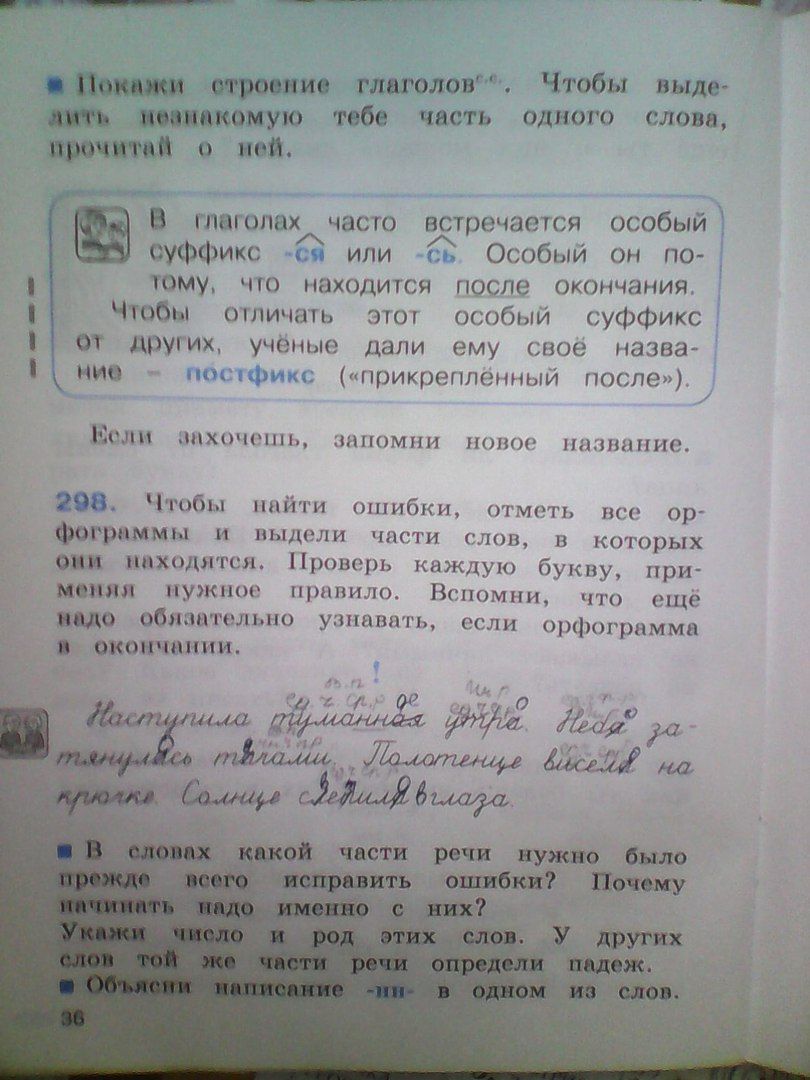 Покажи строение глаголов с.с. Чтобы выде-
лить незнакомую тебе часть одного слова,
прочитай о ней.
В глаголах часто встречается особый
суффикс -ся или -сь. Особый он по-
тому, что находится после окончания.
Чтобы отличать этот особый суффикс
от других, учёные дали ему своё назва-
ние – постфикс («прикреплённый после»).
Если захочешь, запомни новое название.
298. Чтобы найти ошибки, отметь все ор-
фограммы и выдели части слов, в которых
они находятся. Проверь каждую букву, при-
меняя нужное правило. Вспомни, что ещё
надо обязательно узнавать, если орфограмма
в окончании.
!
ед.ч ср.р ое
Наступила туманная утра. Неба за-
тянулась тячами. Полотенце висела на
крючке. Солнце слепила в глаза.
В словах какой части речи нужно было
прежде всего исправить ошибки? Почему
начинать надо именно с них?
Укажи число и род этих слов. У других
слов той же части речи определи падеж.
Объясни написание -нн- в одном из слов.
36